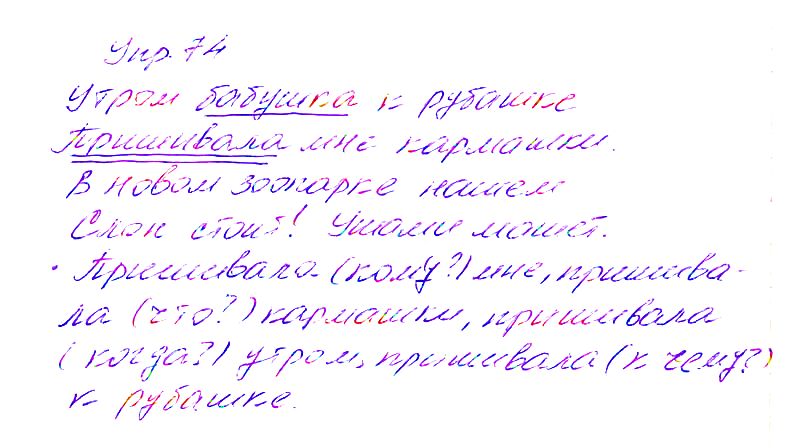 Упр. 74
Утром бабушка к рубашке
Пришивала мне кармашки.
В новом зоопарке нашем
Слон стоит! Ушами машет.
• Пришивала (кому?) мне, пришива-
ла (что?) кармашки, пришивала
(когда?) утром, пришивала (к чему?)
к рубашке.